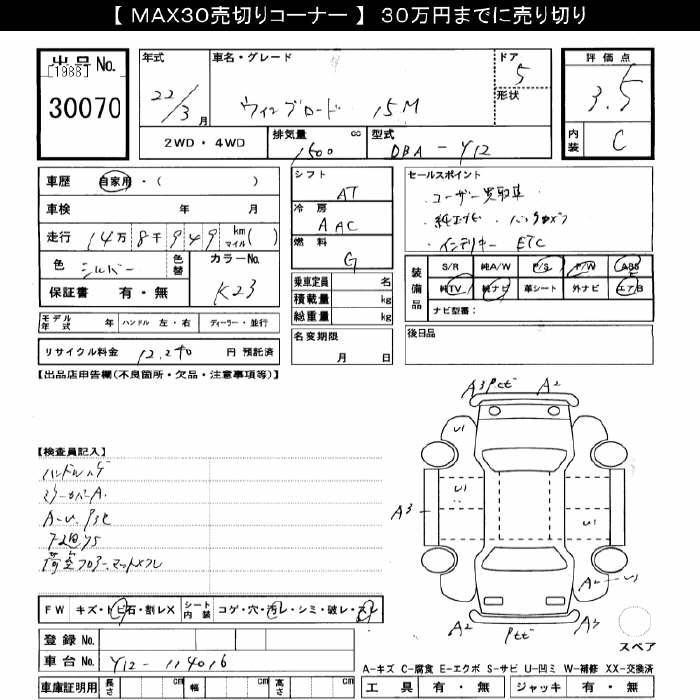 【 MAX30売切りコーナー 】 30万円までに売り切り
出品 No.
[1988]
30070
年式
22/3 月
車名・グレード
ウイングロード 15M
ドア
5
形状
評価点
3.5
内装
C
2WD・4WD
排気量 cc
1500
型式
DBA - Y12
車歴 自家用・( )
車検 年 月
走行 14万 8千 9 4 9 km マイル ( )
色 シルバー
色替
カラーNo.
K23
保証書 有・無
シフト
AT
冷房
AAC
燃料
G
乗車定員 名
積載量 kg
総重量 kg
セールスポイント
・ユーザー買取車
・純正ナビ ・バックカメラ
・インテリキー ETC
装備品
S/R 純A/W P/S P/W ABS
純TV 純ナビ 革シート 外ナビ エアB
ナビ型番:
モデル年式 年 ハンドル 左・右 ディーラー・並行
リサイクル料金 12,240 円 預託済
名変期限
月 日
後日品
【出品店申告欄(不良箇所・欠品・注意事項等)】
【検査員記入】
ハンドルハゲ
A-U.
荷室フロアーマットメクレ
A3 A2
U1
U1
A3
U1
A2 A3
FW キズ・トビ石・割レX
シート内装 コゲ・穴・汚レ・シミ・破レ・スレ
登録 No.
車台 No. Y12-114016
車庫証明用 長さ cm 幅 cm 高さ cm
スペア
A-キズ C-腐食 E-エクボ S-サビ U-凹ミ W-補修 XX-交換済
工具 有・無 ジャッキ 有・無